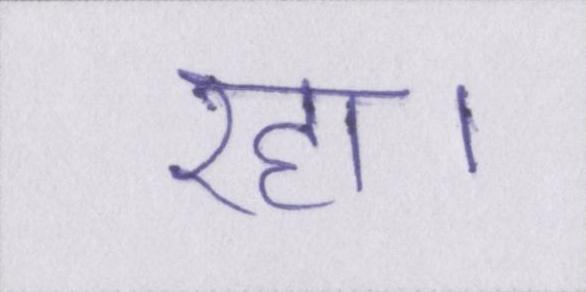 रहा।